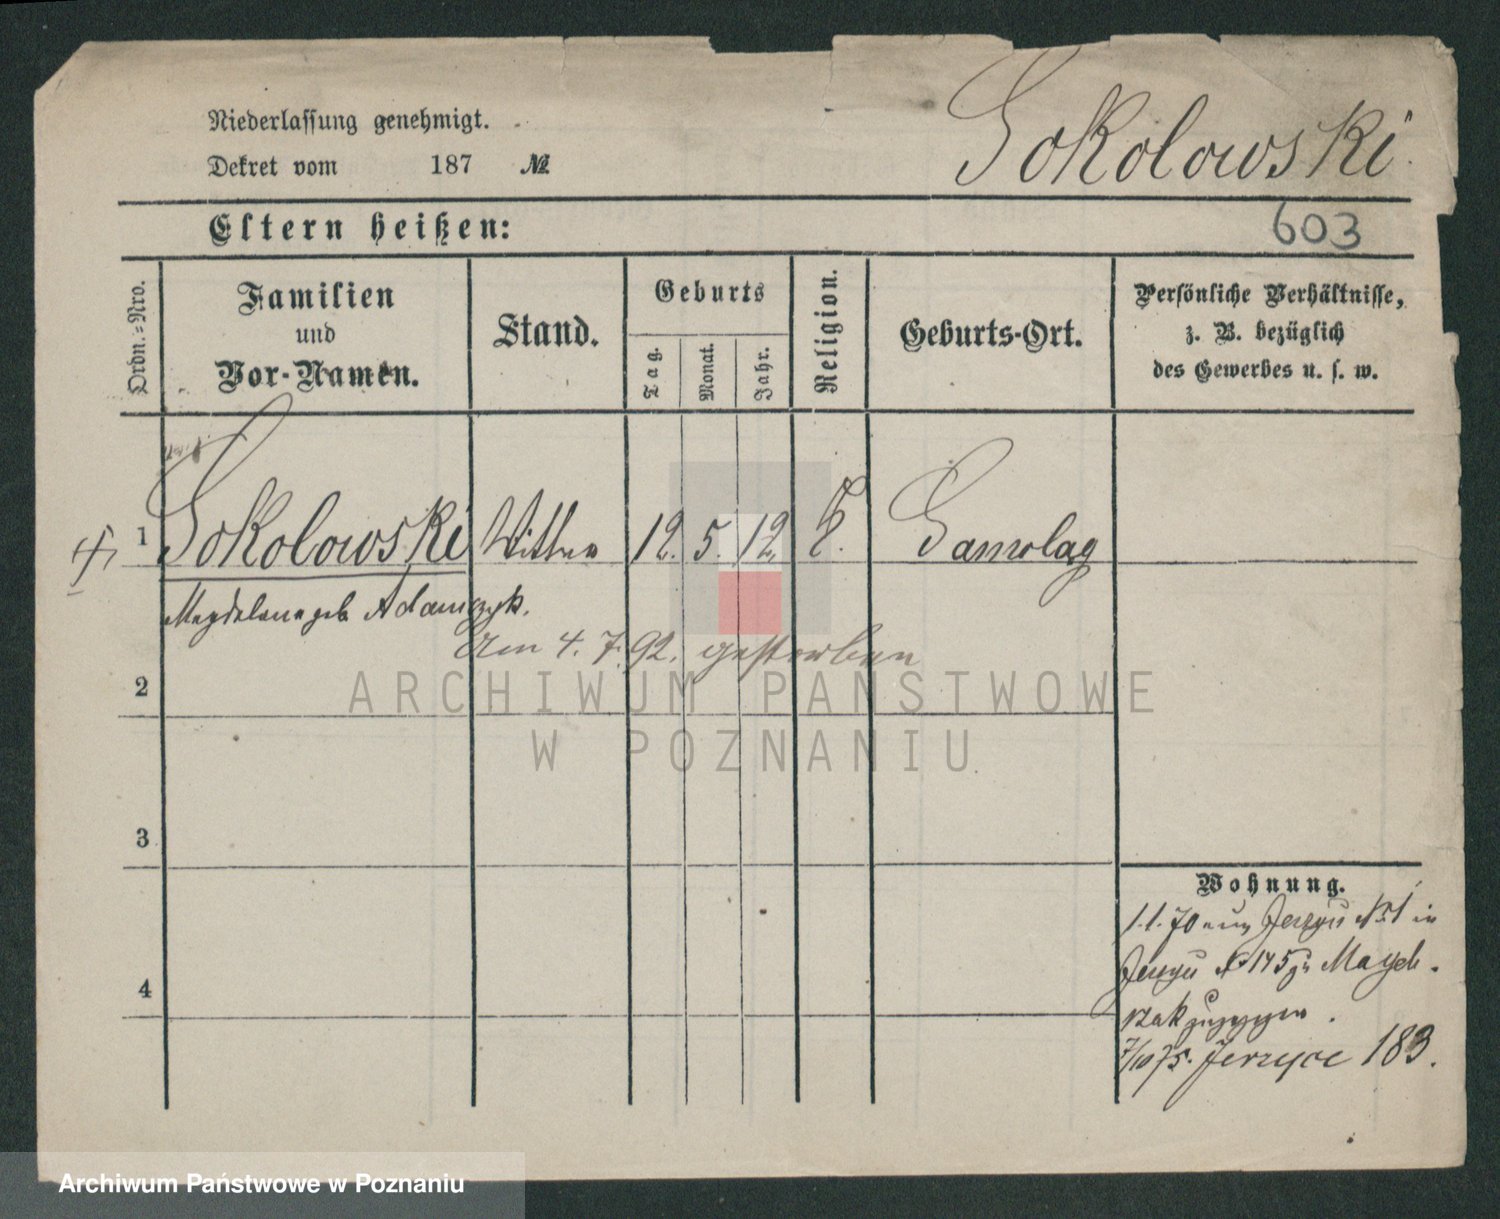 Sokolowski
Niederlassung genehmigt.
Dekret vom 187 №
Eltern heißen:
603
Ordn.=Nro.
Familien
und
Vor-Namen.
Stand.
Geburts
Tag.
Monat.
Jahr.
Religion.
Geburts-Ort.
Persönliche Verhältnisse,
z. B. bezüglich
des Gewerbes u. s. w.
1 Sokolowski Wittwe 12. 5. 12.
Magdalena geb Adamczyk.
Am 4. 7. 92. gestorben
2
3
4
Wohnung.
1.1.70 aus № 1 in
№ 145 zu
zugezogen.
7/10 75. Jerzyce 183.
ARCHIWUM PAŃSTWOWE
W POZNANIU
Archiwum Państwowe w Poznaniu